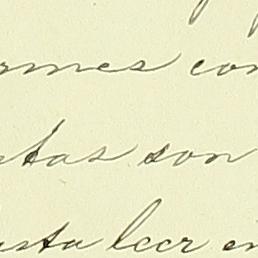 rmes con
tas son
usta leer en